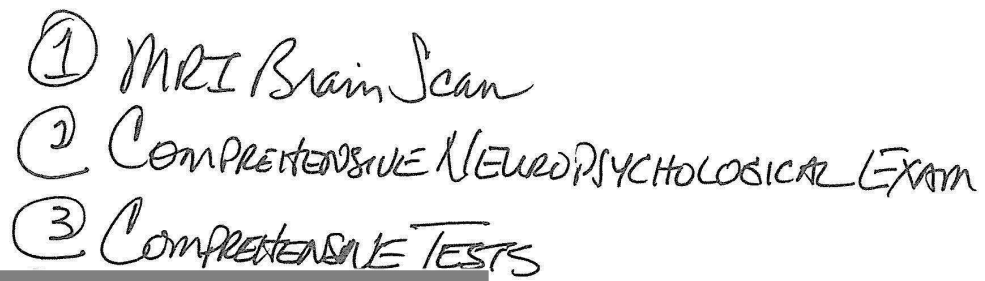 ① MRI Brain Scan
② COMPREHENSIVE NEUROPSYCHOLOGICAL EXAM
③ COMPREHENSIVE TESTS